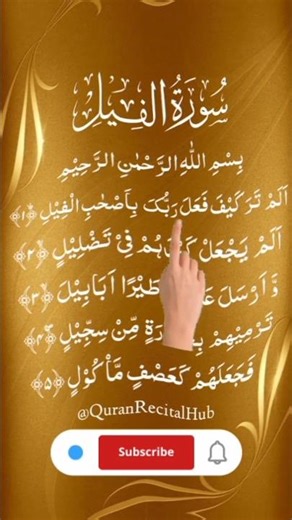 سُورَةُ الفِيلِ
بِسْمِ اللّٰهِ الرَّحْمٰنِ الرَّحِيْمِ
اَلَمْ تَرَ كَيْفَ فَعَلَ رَبُّكَ بِاَصْحٰبِ الْفِيْلِ ﴿۱﴾
اَلَمْ يَجْعَلْ هُمْ فِيْ تَضْلِيْلٍ ﴿۲﴾
وَّاَرْسَلَ طَيْرًا اَبَابِيْلَ ﴿۳﴾
تَرْمِيْهِمْ مِّنْ سِجِّيْلٍ ﴿۴﴾
فَجَعَلَهُمْ كَعَصْفٍ مَّاْكُوْلٍ ﴿۵﴾
@QuranRecitalHub
Subscribe